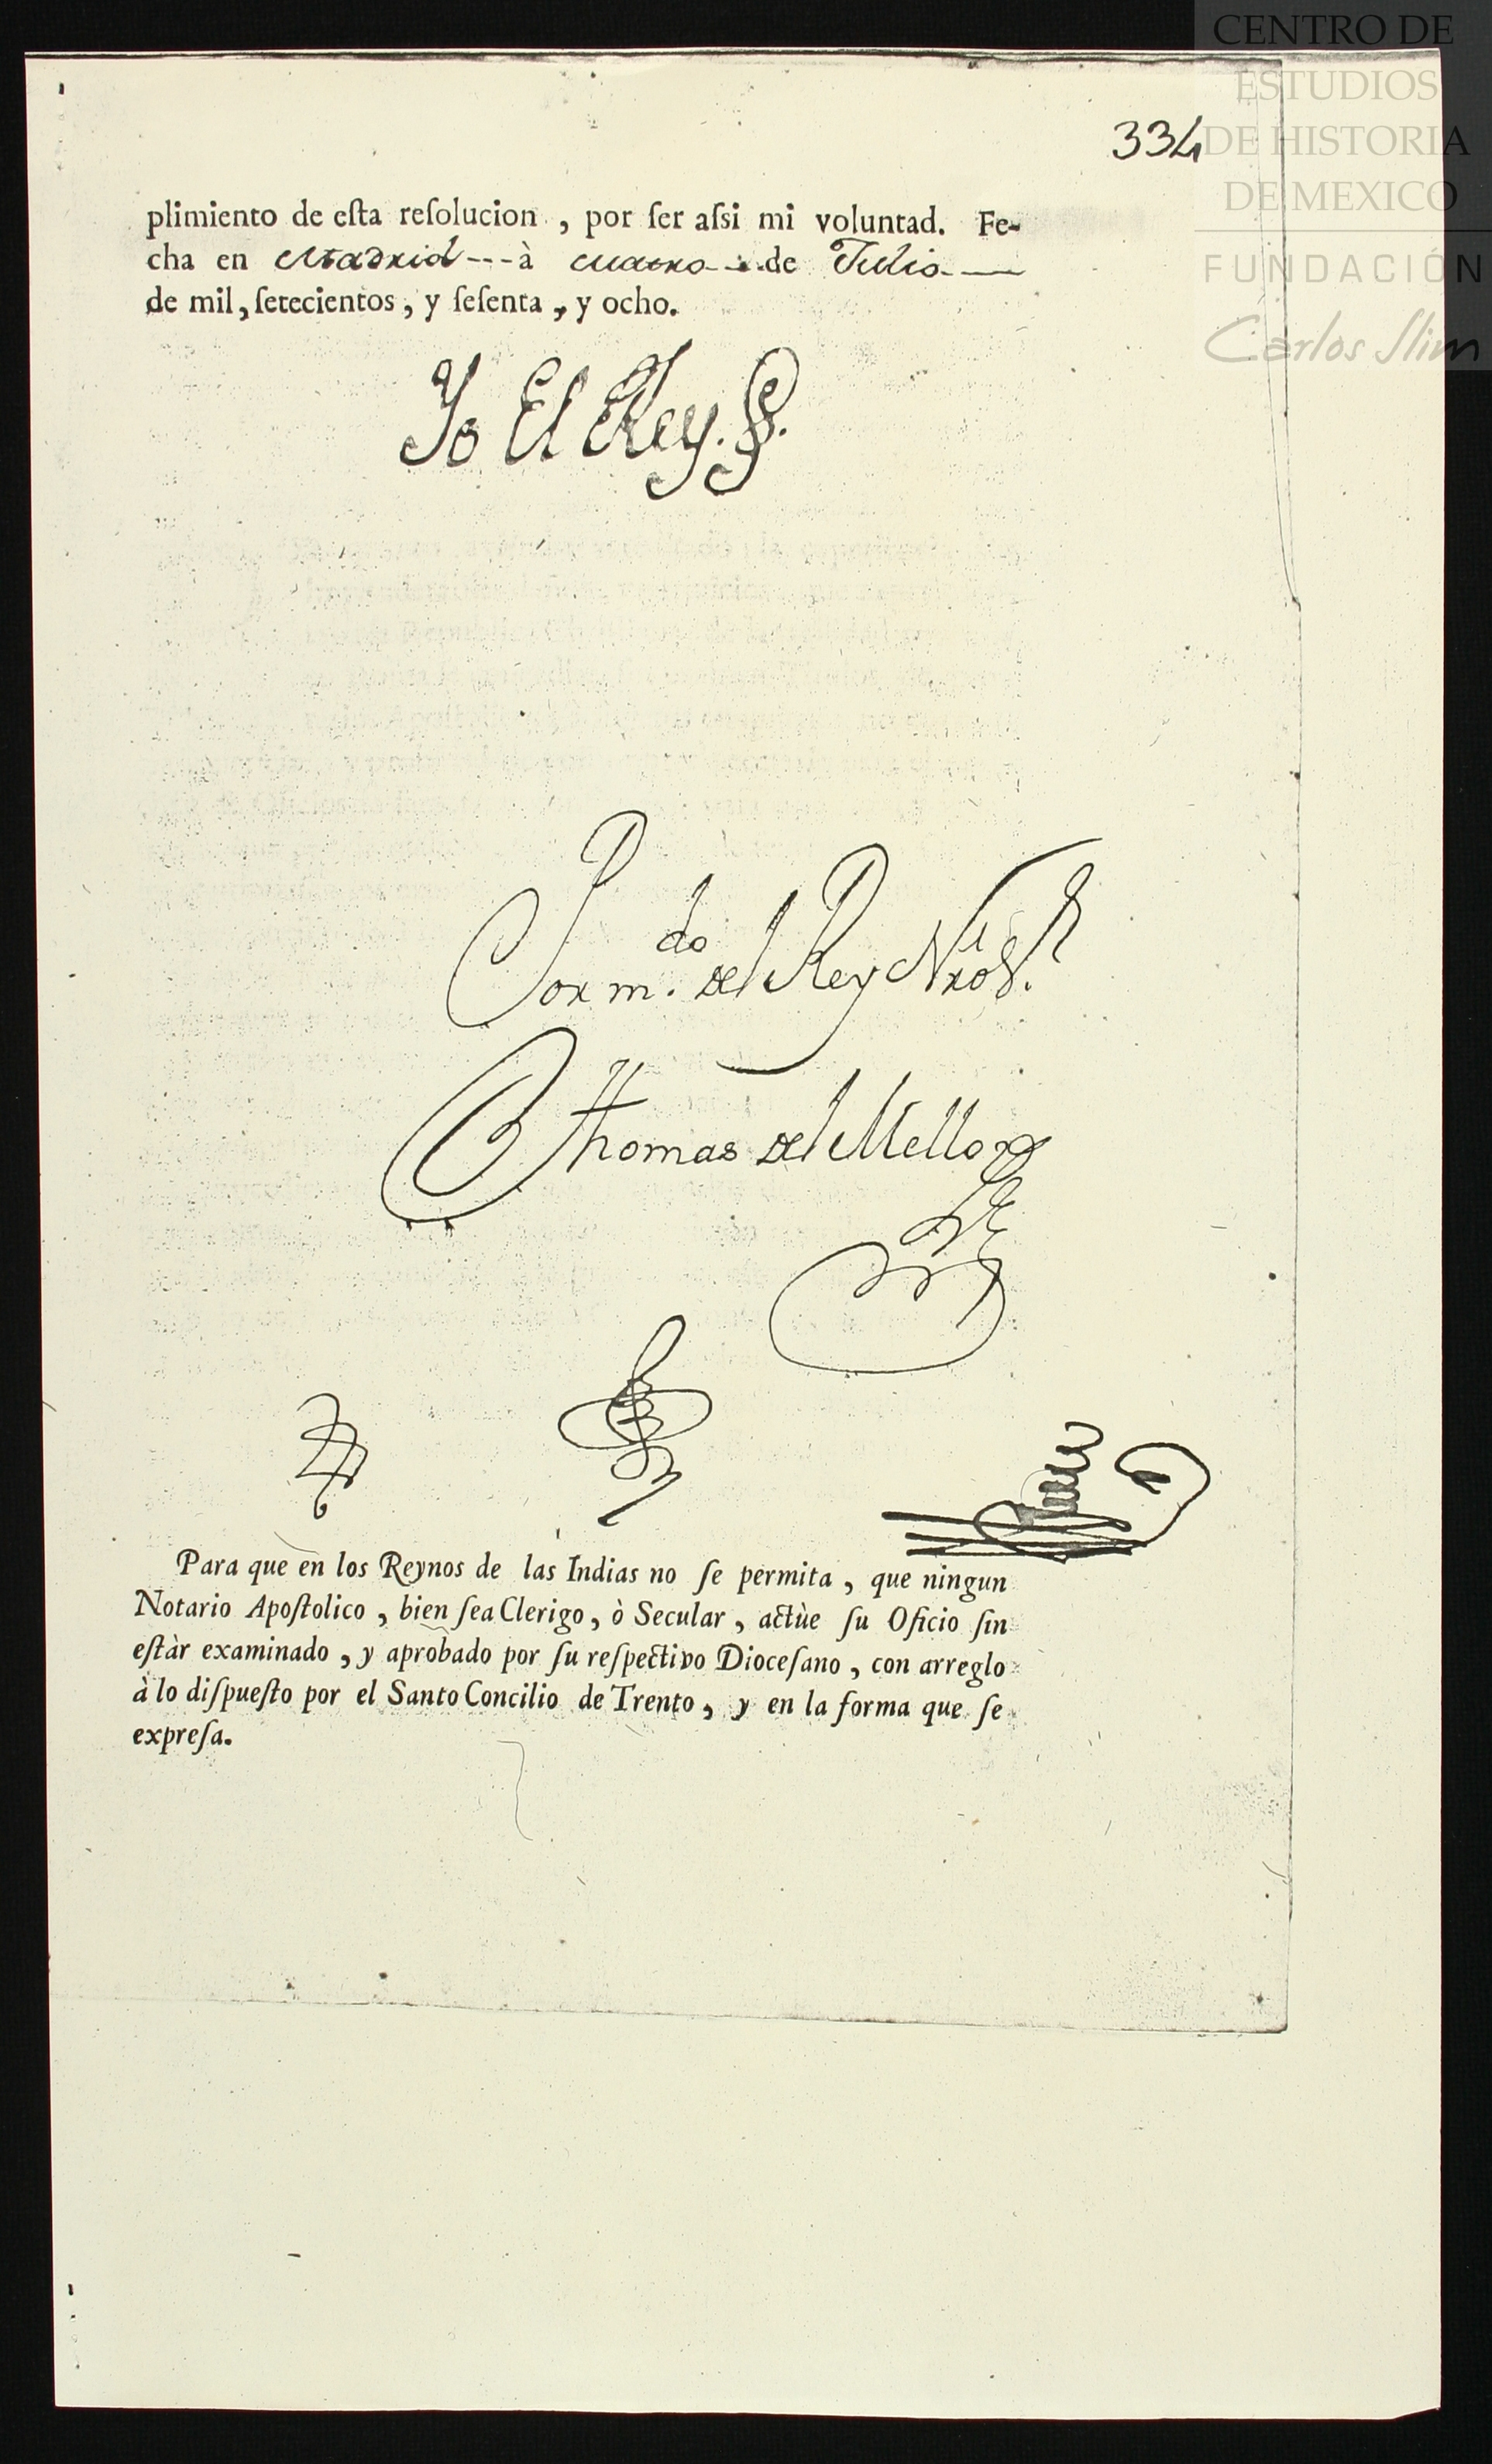 CENTRO DE
ESTUDIOS
DE HISTORIA
DE MEXICO
FUNDACIÓN
Carlos Slim
334
plimiento de eſta reſolucion , por ſer aſsi mi voluntad. Fe-
cha en Madrid --- à cuatro --- de Julio —
de mil, ſetecientos, y ſeſenta, y ocho.
Yo El Rey.
Por m.do del Rey Nro S.r
Thomas del Mello
Para que en los Reynos de las Indias no ſe permita, que ningun
Notario Apoſtolico, bien ſea Clerigo, ò Secular, actùe ſu Oficio ſin
eſtàr examinado, y aprobado por ſu reſpectivo Dioceſano, con arreglo
à lo diſpueſto por el Santo Concilio de Trento, y en la forma que ſe
expreſa.